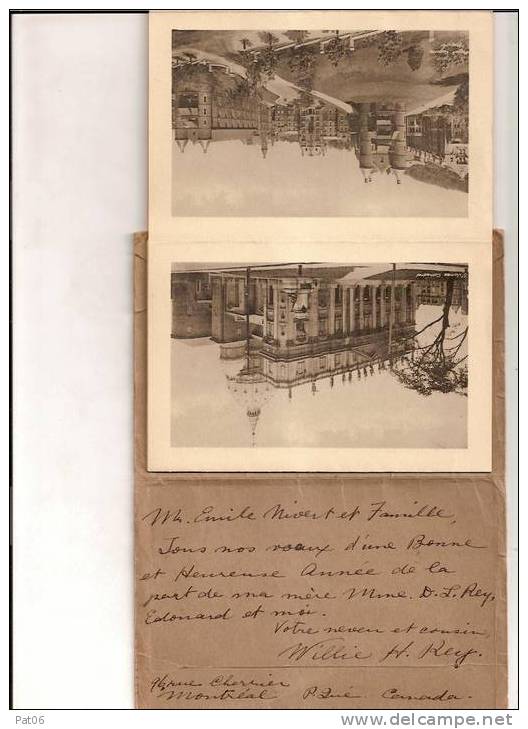 St James Cathedral
Mr. Emile Nivert et Famille,
Tous nos voeux d'une Bonne
et Heureuse Année de la
part de ma mère Mme. D. L. Rey,
Edouard et moi.
Votre neveu et cousin,
Willie H. Rey.
rue Cherrier
Montréal P. Qué. Canada.
Pat06